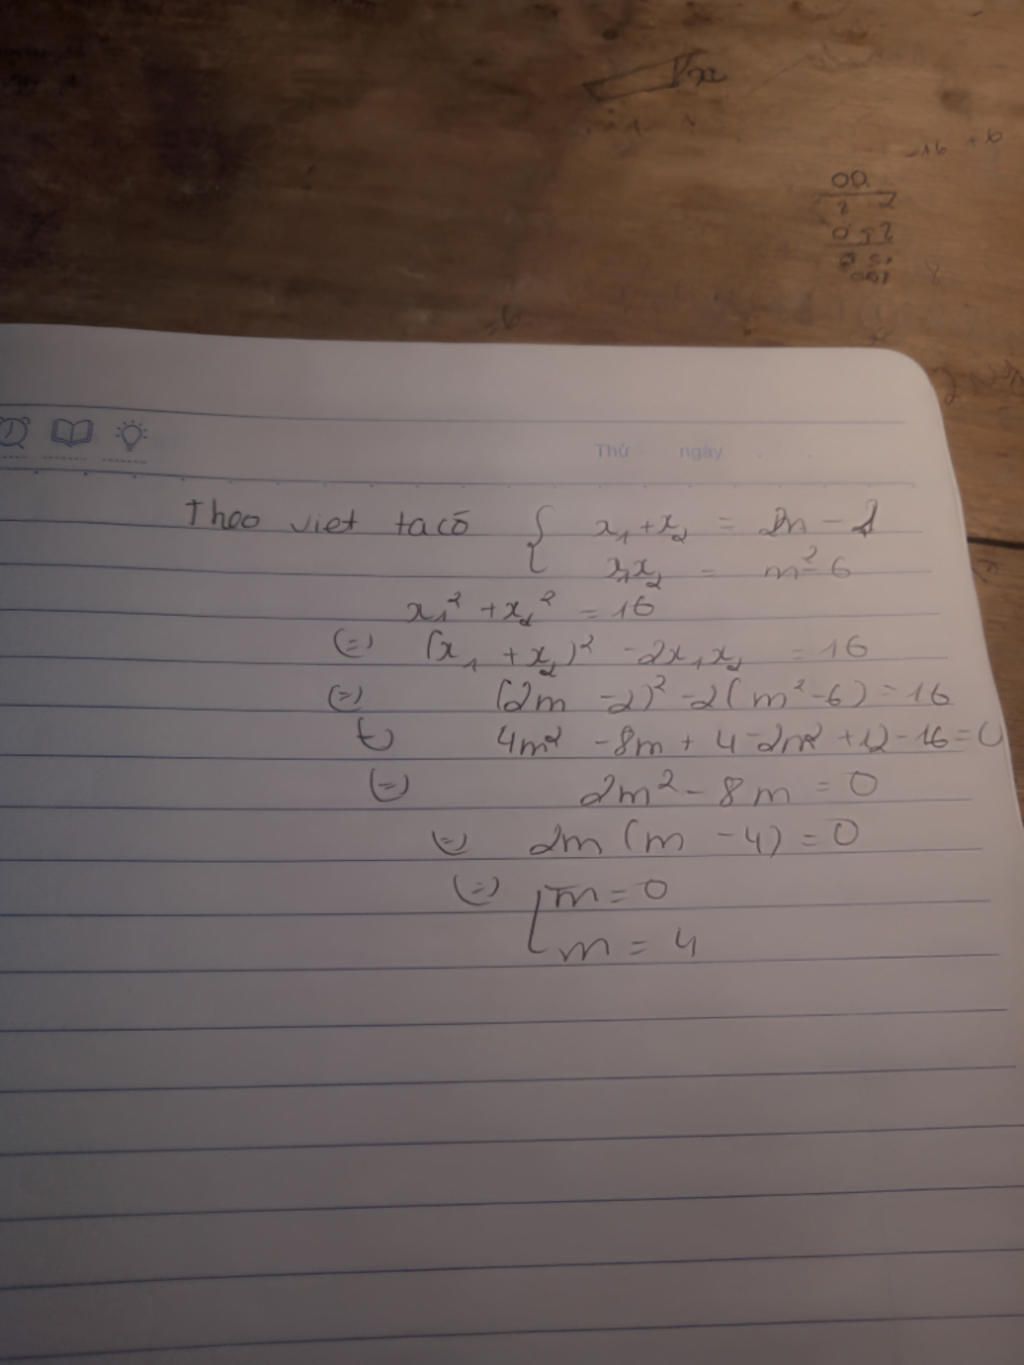 Thứ ngày
Theo viet ta có { x₁ + x₂ = 2m - 2
x₁x₂ = m² - 6
x₁² + x₂² = 16
(=) (x₁ + x₂)² - 2x₁x₂ = 16
(=) (2m - 2)² - 2(m² - 6) = 16
(=) 4m² - 8m + 4 - 2m² + 12 - 16 = 0
(=) 2m² - 8m = 0
(=) 2m (m - 4) = 0
(=) [ m = 0
m = 4